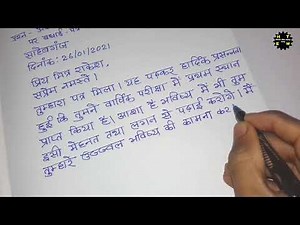 पर बधाई-पत्र
साहिबगंज
दिनांक: 26/01/2021
प्रिय मित्र राकेश,
सप्रेम नमस्ते।
तुम्हारा पत्र मिला। यह पढ़कर हार्दिक प्रसन्नता
हुई कि तुमने वार्षिक परीक्षा में प्रथम स्थान
प्राप्त किया है। आशा है भविष्य में भी तुम
इसी मेहनत तथा लगन से पढ़ाई करोगे। मैं
तुम्हारे उज्ज्वल भविष्य की कामना कर